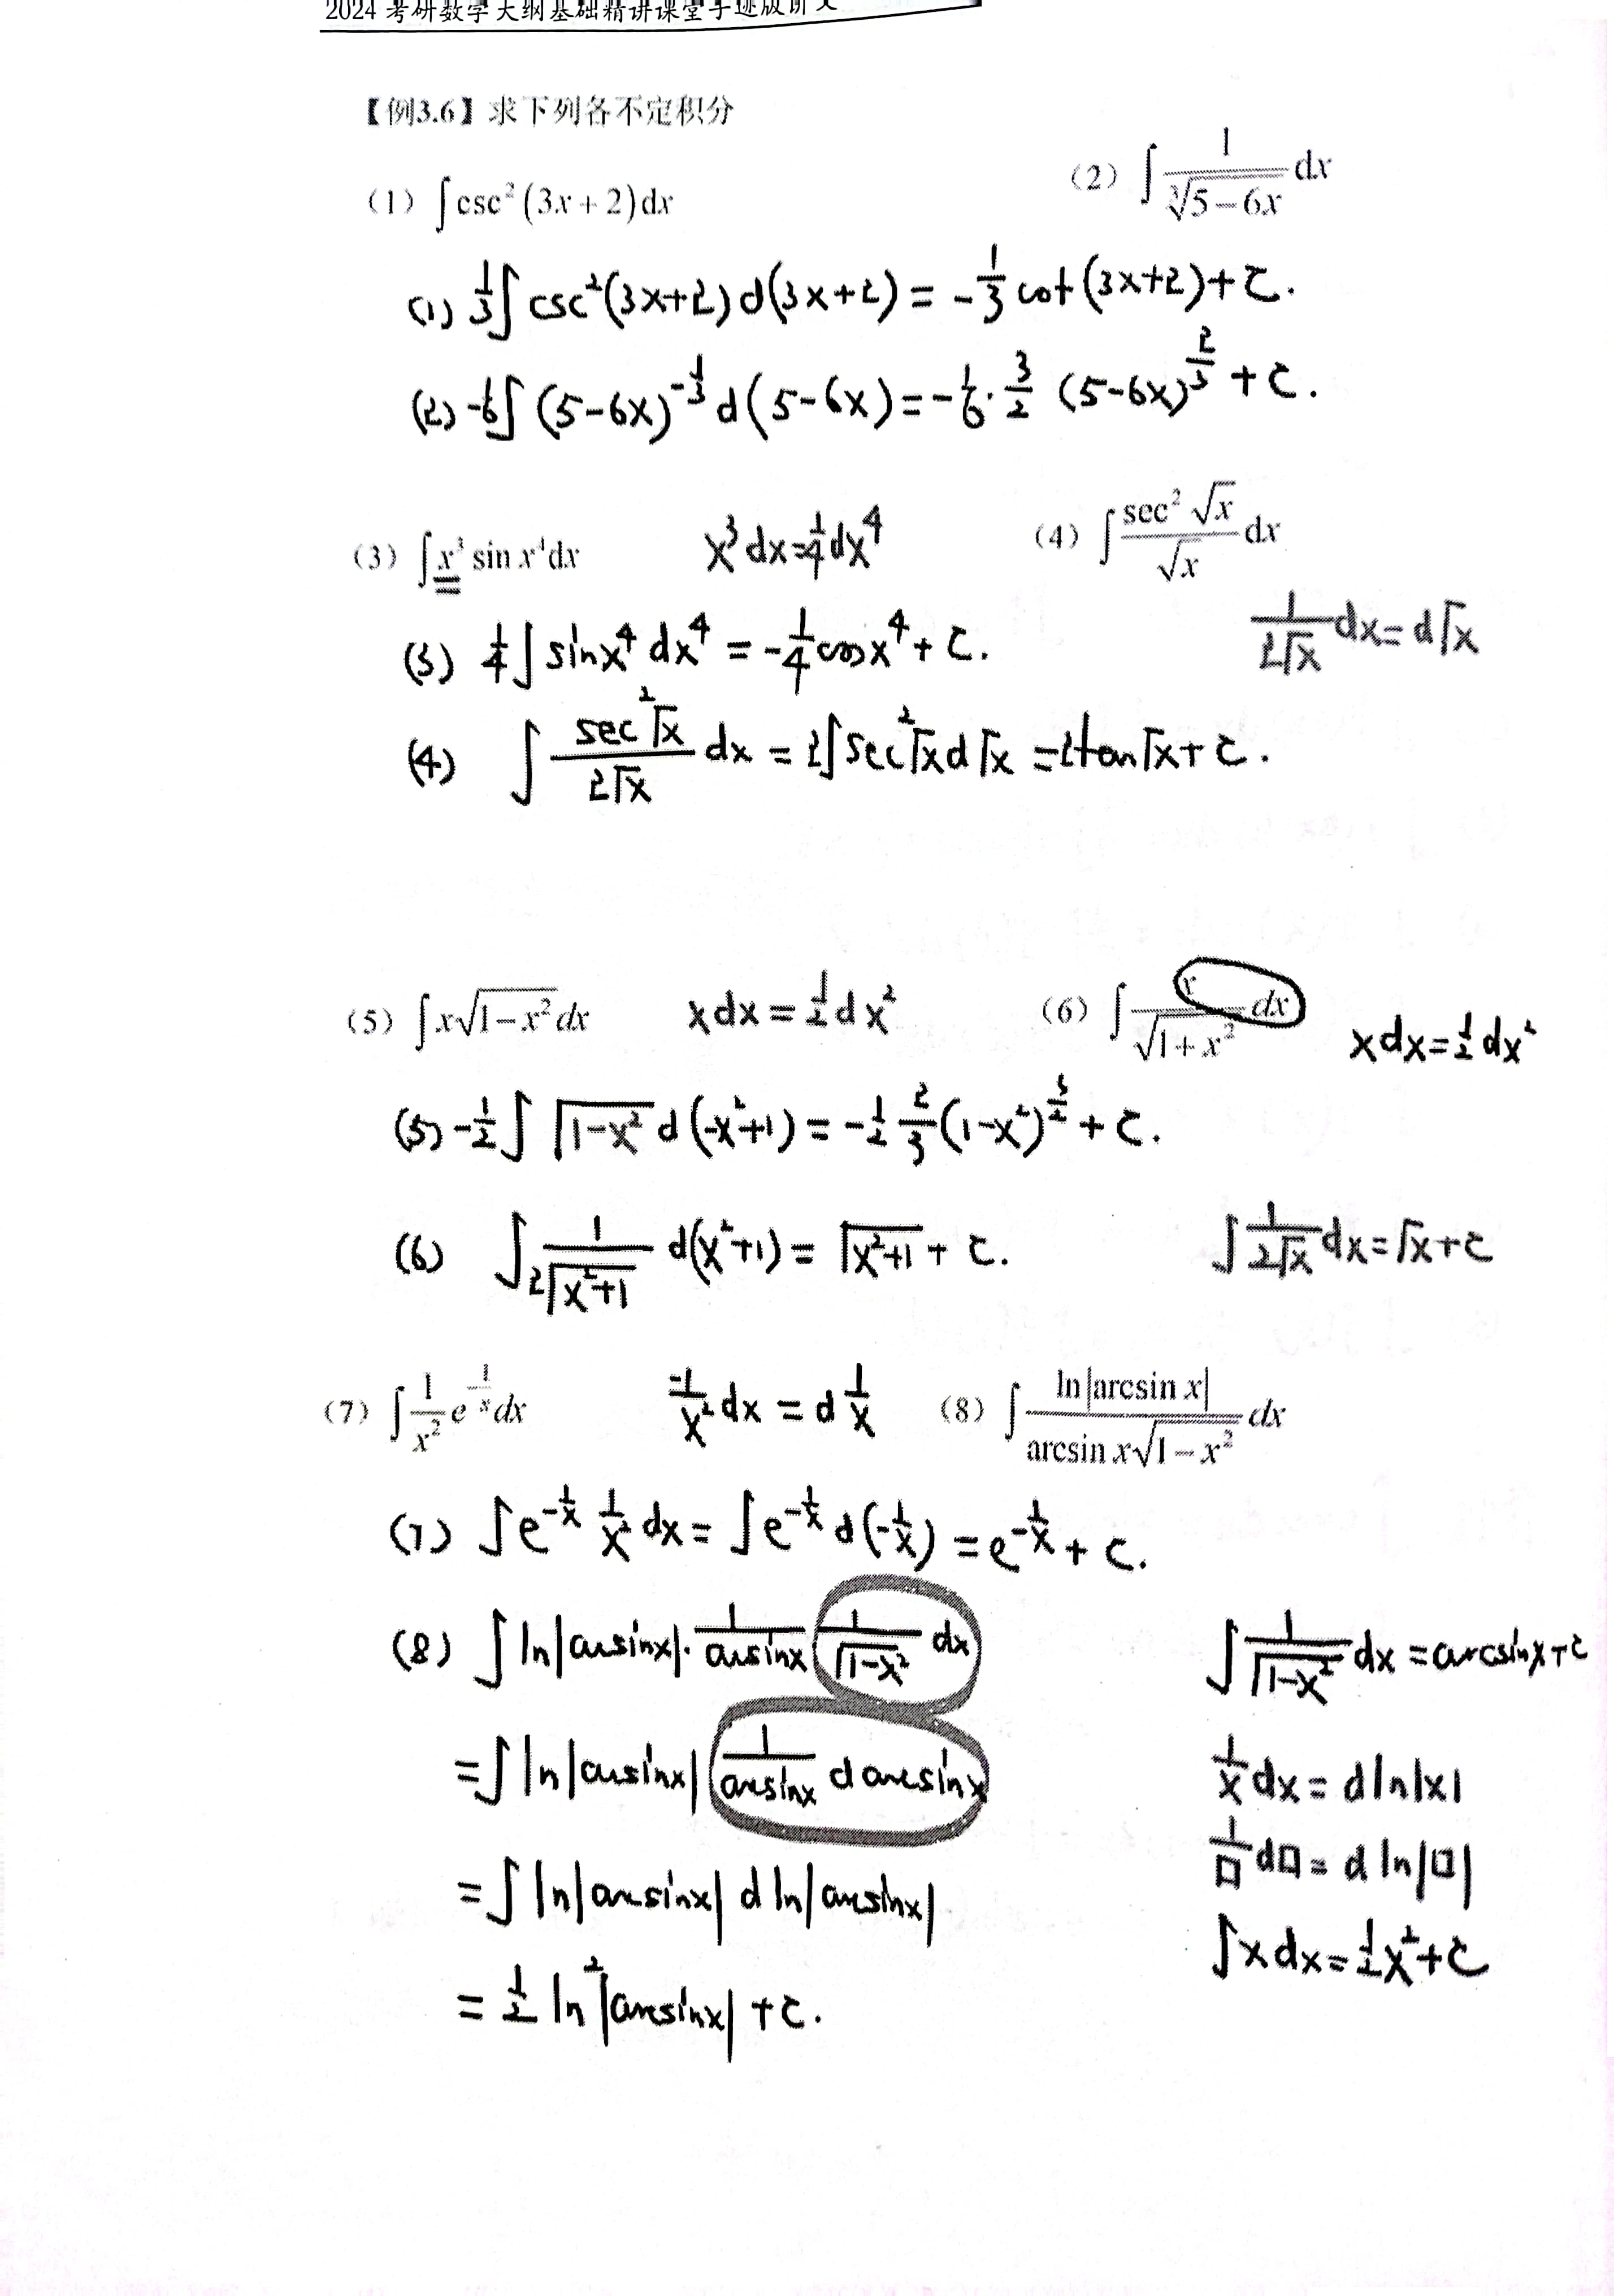 2024 考研数学大纲基础精讲课堂手迹版讲义
【例3.6】求下列各不定积分
(1) ∫csc²(3x+2)dx (2) ∫1/∛(5−6x) dx
(1) 1/3∫csc²(3x+2)d(3x+2) = −1/3 cot(3x+2)+C.
(2) −1/6∫(5−6x)^(−1/3) d(5−6x) = −1/6·3/2 (5−6x)^(2/3) + C.
(3) ∫x³ sin x⁴dx x³dx=1/4 dx⁴ (4) ∫sec²√x/√x dx
1/(2√x) dx = d√x
(3) 1/4∫sinx⁴ dx⁴ = −1/4 cosx⁴ + C.
(4) ∫sec²√x/(2√x) dx = 2∫sec²√x d√x = 2tan√x + C.
(5) ∫x√(1−x²)dx xdx = 1/2 dx² (6) ∫x/√(1+x²) dx xdx = 1/2 dx²
(5) −1/2∫√(1−x²) d(−x²+1) = −1/2 2/3 (1−x²)^(3/2) + C.
(6) ∫1/(2√(x²+1)) d(x²+1) = √(x²+1) + C. ∫1/(2√x) dx = √x+C
(7) ∫1/x² e^(−1/x) dx −1/x² dx = d 1/x (8) ∫ln|arcsin x|/(arcsin x√(1−x²)) dx
(7) ∫e^(−1/x) 1/x² dx = ∫e^(−1/x) d(−1/x) = e^(−1/x) + C.
(8) ∫ln|arcsinx|·1/arcsinx 1/√(1−x²) dx ∫1/√(1−x²) dx = arcsinx+C
=∫ln|arcsinx| 1/arcsinx d arcsinx 1/x dx = d ln|x|
=∫ln|arcsinx| d ln|arcsinx| 1/□ d□ = d ln|□|
= 1/2 ln²|arcsinx| + C. ∫xdx = 1/2 x²+C